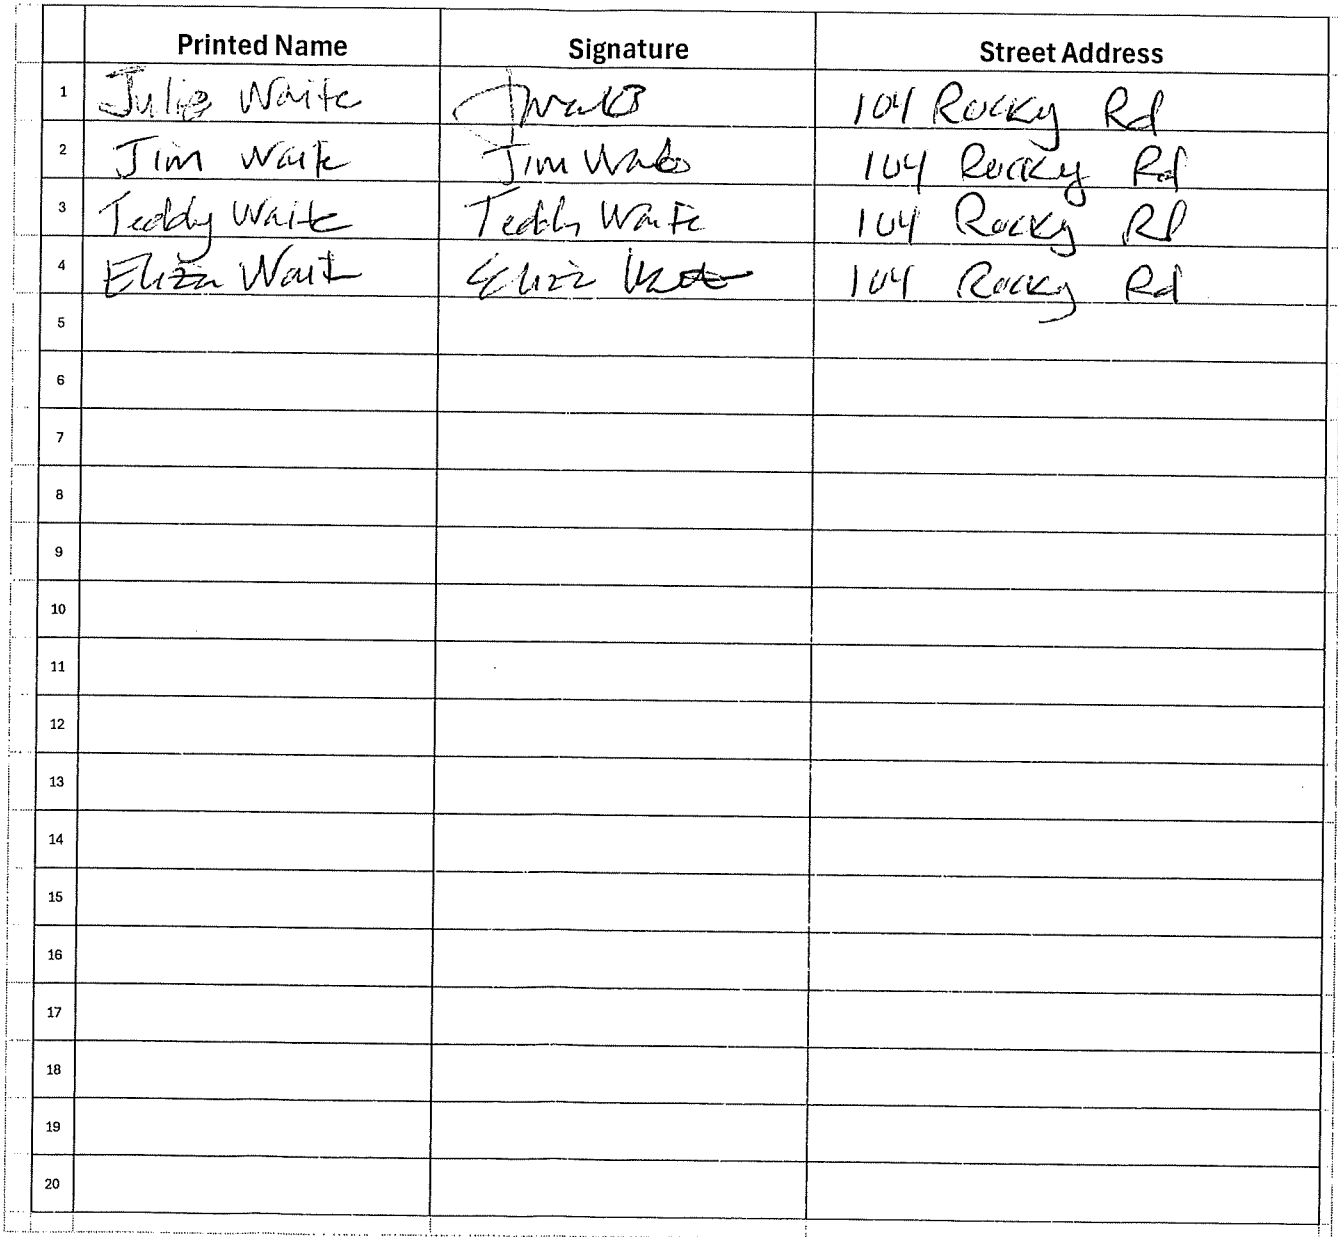 Printed Name Signature Street Address
1 Julie Waite 104 Rocky Rd
2 Jim Waite Jim Waite 104 Rocky Rd
3 Teddy Waite Teddy Waite 104 Rocky Rd
4 Eliza Wait Eliza 104 Rocky Rd
5
6
7
8
9
10
11
12
13
14
15
16
17
18
19
20